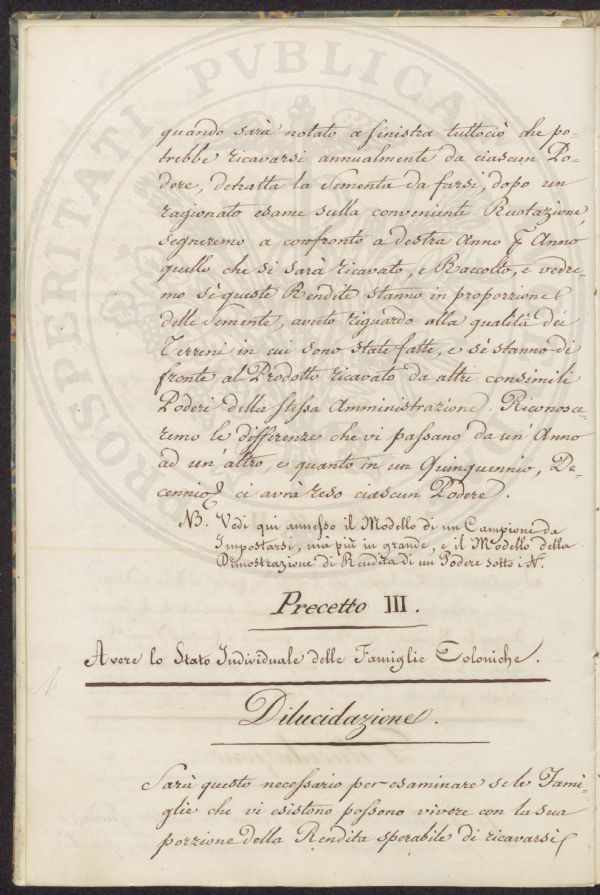 quando sarà notato a sinistra tuttociò che po-
trebbe ricavarsi annualmente da ciascun Po-
dere, detratta la Sementa da farsi, dopo un
ragionato esame sulla conveniente Ruotazione,
segneremo a confronto a destra Anno p Anno
quello che si sarà ricavato, e Raccolto, e vedre-
mo sè queste Rendite stanno in proporzione
delle Semente, avuto riguardo alla qualità dei
Terreni in cui sono state fatte, e sè stanno di
fronte al Prodotto ricavato da altri consimili
Poderi della stessa Amministrazione. Riconosce-
remo le differenze che vi passano da un' Anno
ad un' altro, e quanto in un Quinquennio, De-
cennio ci avrà reso ciascun Podere.
NB. Vedi qui annesso il Modello di un Campione da
Impostarsi, mà più in grande, e il Modello della
Dimostrazione di Rendita di un Podere sotto i N.
Precetto III.
Avere lo Stato Individuale delle Famiglie Coloniche.
Dilucidazione.
Sarà questo necessario per esaminare se le Fami-
glie che vi esistono possono vivere con la sua
porzione della Rendita sperabile di ricavarsi
PROSPERITATI PVBLICAE